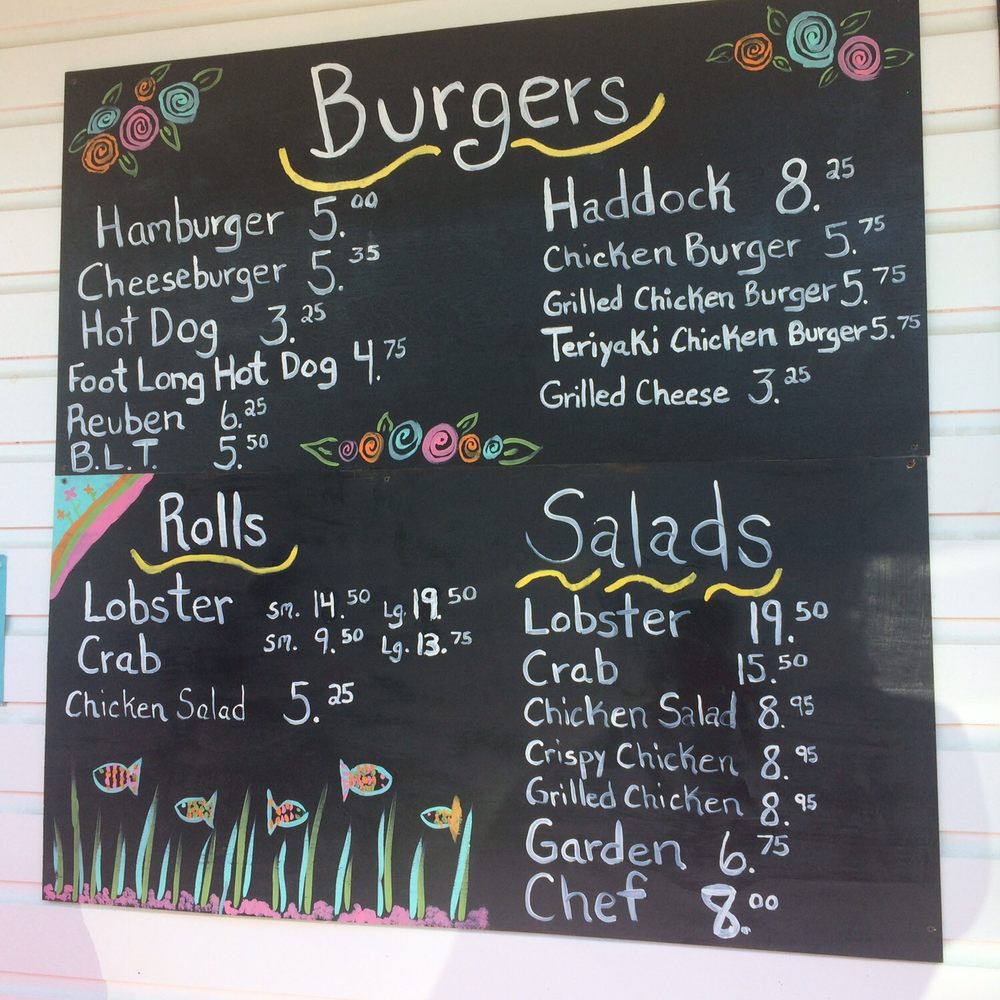 Burgers
Hamburger 5.00
Cheeseburger 5.35
Hot Dog 3.25
Foot Long Hot Dog 4.75
Reuben 6.25
B.L.T. 5.50
Haddock 8.25
Chicken Burger 5.75
Grilled Chicken Burger 5.75
Teriyaki Chicken Burger 5.75
Grilled Cheese 3.25
Rolls
Lobster sm. 14.50 Lg. 19.50
Crab sm. 9.50 Lg. 13.75
Chicken Salad 5.25
Salads
Lobster 19.50
Crab 15.50
Chicken Salad 8.95
Crispy Chicken 8.95
Grilled Chicken 8.95
Garden 6.75
Chef 8.00